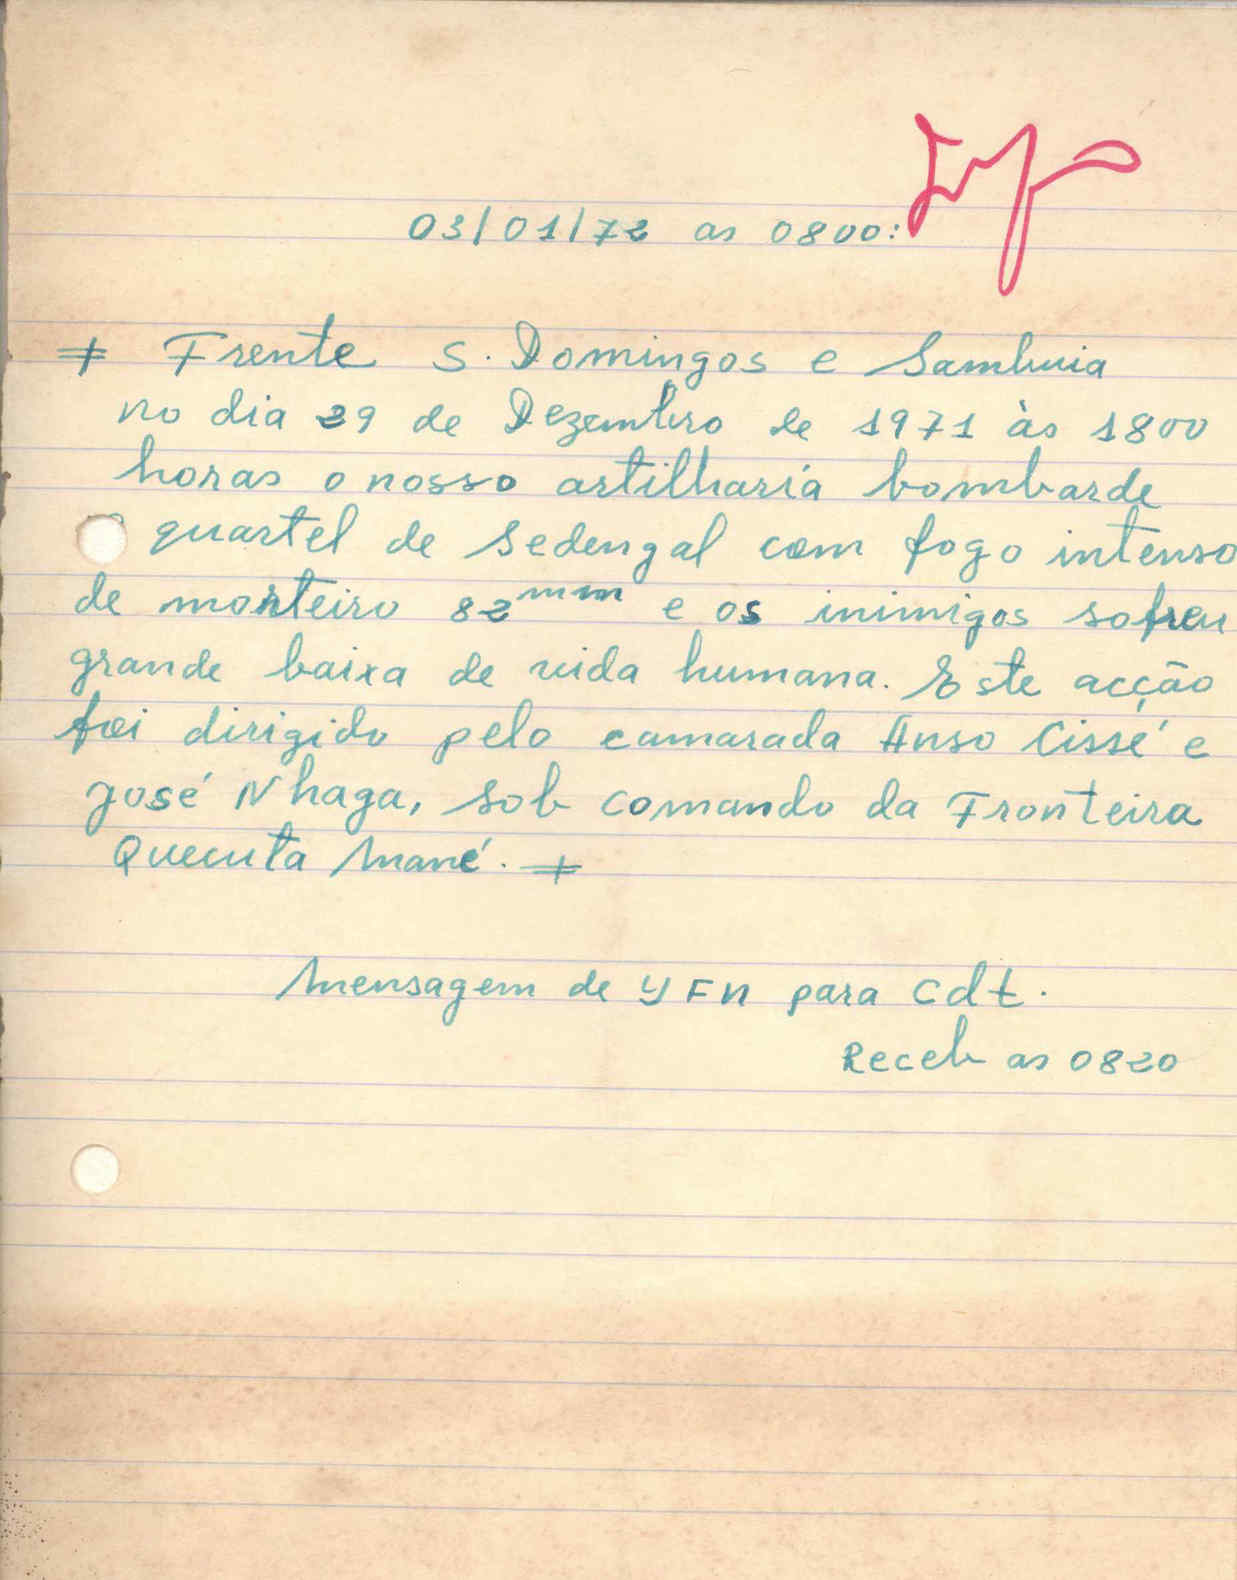 03/01/72 as 0800:
≠ Frente S. Domingos e Sambuia
no dia 29 de Dezembro de 1971 às 1800
horas o nosso artilharia bombarde
quartel de Sedengal com fogo intenso
de morteiro 82mm e os inimigos sofreu
grande baixa de vida humana. Este acção
foi dirigido pelo camarada Anso Cissé e
José Nhaga, sob comando da Fronteira
Quecuta Mané. ≠
Mensagem de YFN para Cdt.
Receb as 0820